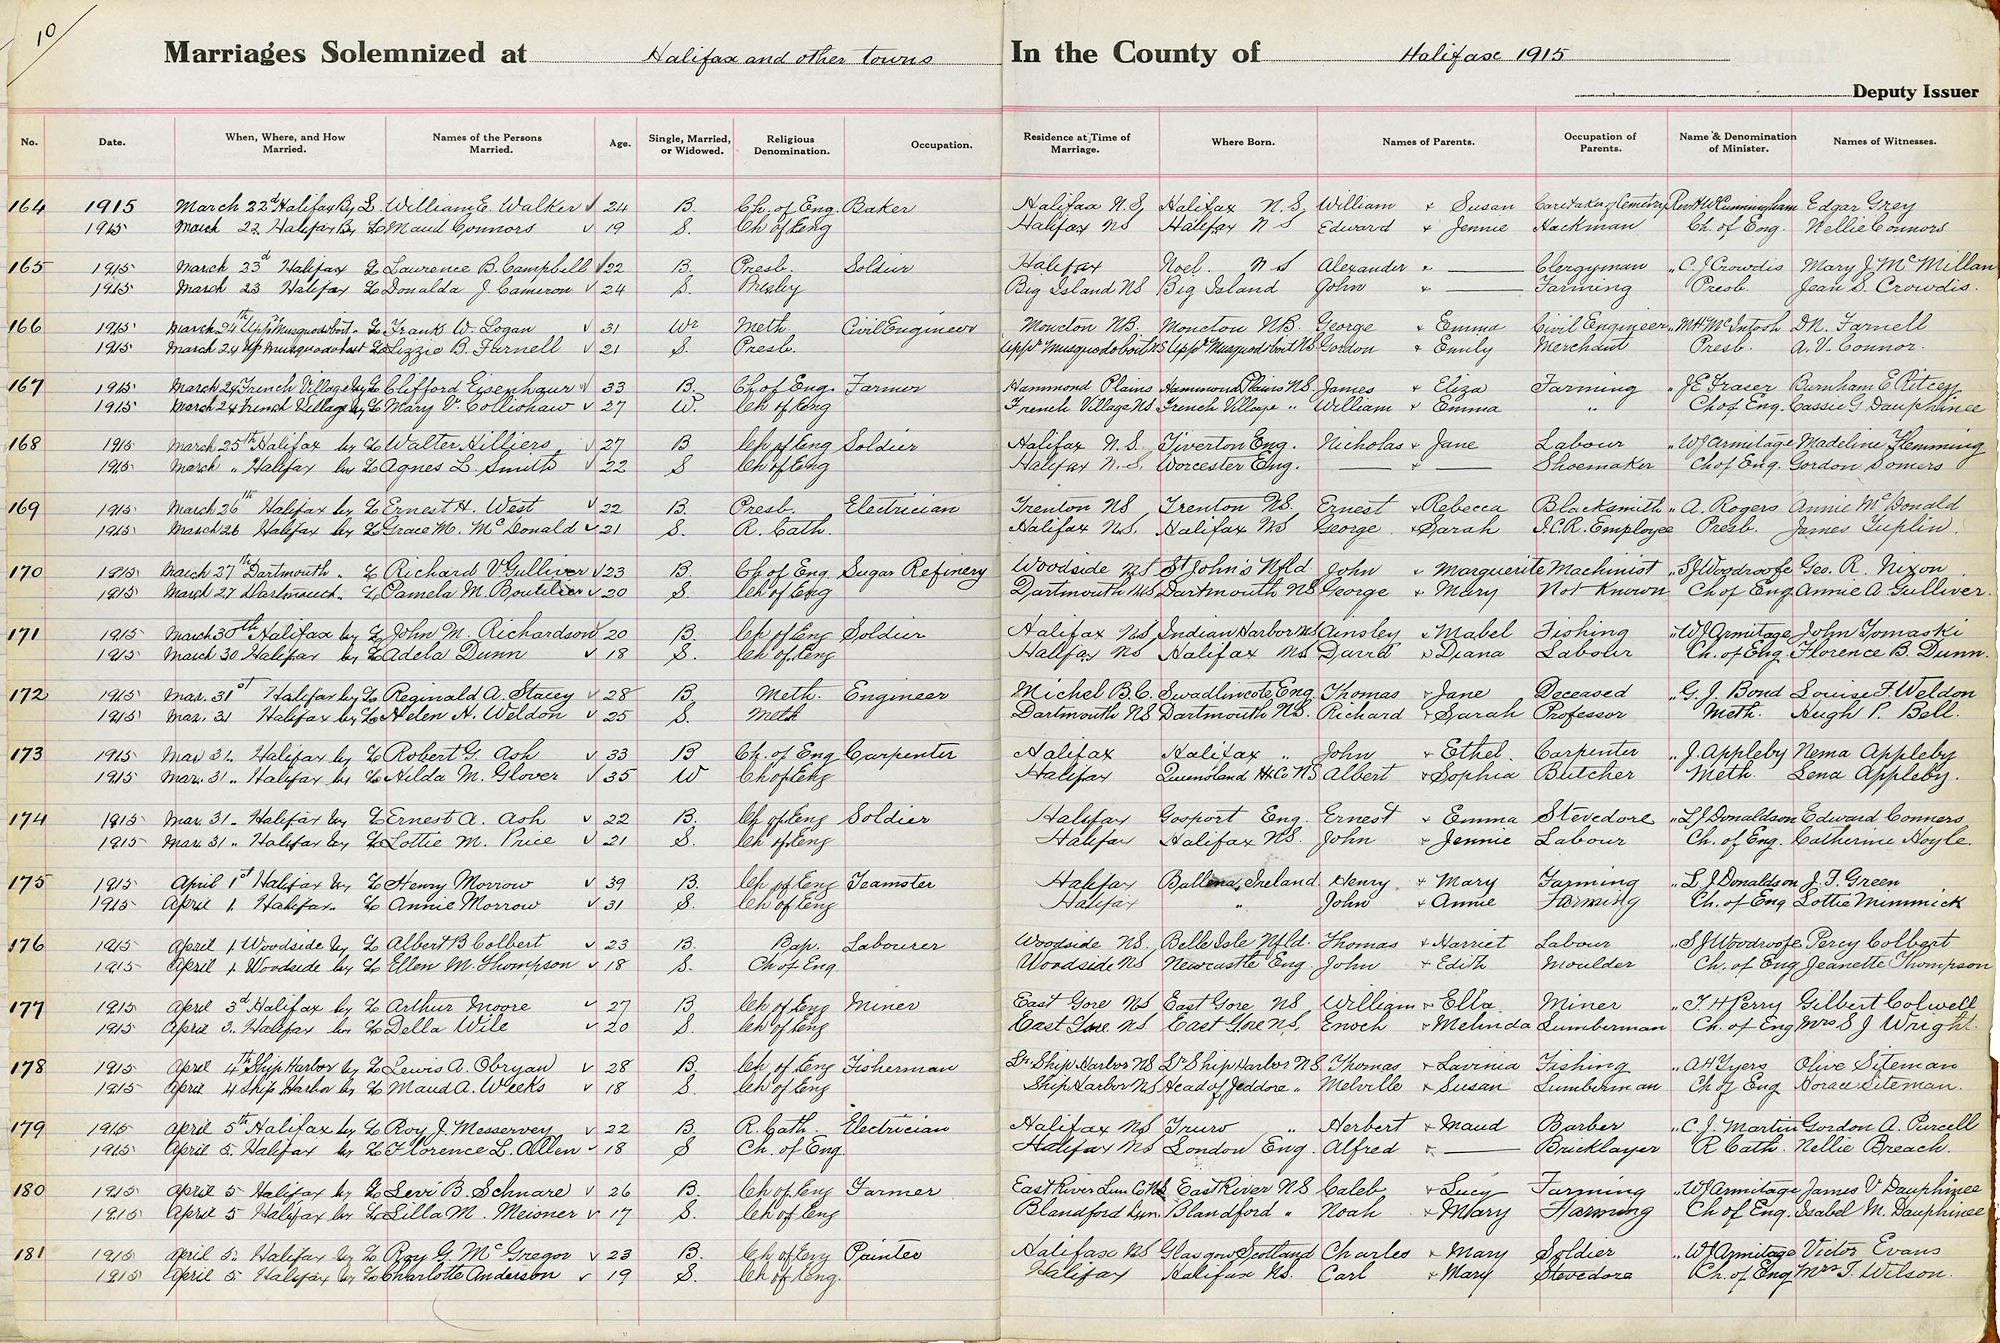 10
Marriages Solemnized at Halifax and other towns In the County of Halifax 1915
Deputy Issuer
No. Date. When, Where, and How Married. Names of the Persons Married. Age. Single, Married, or Widowed. Religious Denomination. Occupation. Residence at Time of Marriage. Where Born. Names of Parents. Occupation of Parents. Name & Denomination of Minister. Names of Witnesses.
164 1915 March 22d Halifax By L William E. Walker √ 24 B. Ch. of Eng. Baker Halifax N.S. Halifax N.S. William & Susan Caretaker of Cemetry Rev H W Cunningham Edgar Grey
1915 March 22 Halifax By L Maud Connors √ 19 S. Ch of Eng Halifax NS Halifax NS Edward & Jennie Hackman Ch. of Eng. Nellie Connors
165 1915 March 23d Halifax L Laurence B. Campbell √ 22 B. Presb. Soldier Halifax Noel. NS Alexander & — Clergyman " C. J Crowdis Mary J. McMillan
1915 March 23 Halifax L Donalda J. Cameron √ 24 S. Presby Big Island NS Big Island John & — Farming Presb. Jean S. Crowdis.
166 1915 March 24th Uppr Musquodoboit. L Frank W. Logan √ 31 Wr Meth. Civil Engineer Moncton NB. Moncton NB. George & Emma Civil Engineer " McIntosh DN. Farnell
1915 March 24 Up Musquodoboit L Lizzie B. Farnell √ 21 S. Presb. Uppr Musquodoboit NS Uppr Musquodoboit NS Gordon & Emily Merchant Presb. A. V. Connor.
167 1915 March 24 French Village by L Clifford Eisenhaur √ 33 B. Ch of Eng. Farmer Hammond Plains Hammond Plains NS. James & Eliza Farming " J E Fraser Burnham E Ritcey
1915 March 24 French Village by L Mary V. Collishaw √ 27 W. Ch of Eng French Village NS French Village " William & Emma " Ch of Eng. Cassie G Dauphinee
168 1915 March 25th Halifax by L Walter Hilliers √ 27 B Ch of Eng Soldier Halifax N.S. Tiverton Eng. Nicholas & Jane Labour " W J Armitage Madeline Flemming
1915 March " Halifax by L Agnes L. Smith √ 22 S Ch of Eng Halifax N.S. Worcester Eng. — & — Shoemaker Ch of Eng. Gordon Somers
169 1915 March 26th Halifax by L Ernest H. West √ 22 B. Presb. Electrician Trenton NS Trenton NS. Ernest & Rebecca Blacksmith " A. Rogers Annie McDonald
1915 March 26 Halifax by L Grace M. McDonald √ 21 S. R. Cath. Halifax N.S. Halifax NS George & Sarah I.C.R. Employee Presb. James Tuplin.
170 1915 March 27th Dartmouth. L Richard V Gulliver √ 23 B. Ch of Eng Sugar Refinery Woodside NS St John's Nfld John & Marguerite Machinist " S J Woodroofe Geo. R. Nixon
1915 March 27 Dartmouth. L Pamela M. Boutilier √ 20 S. Ch of Eng Dartmouth NS Dartmouth NS George & Mary Not Known Ch of Eng Annie A Gulliver.
171 1915 March 30th Halifax by L John M. Richardson √ 20 B. Ch of Eng Soldier Halifax NS Indian Harbor NS Ainsley & Mabel Fishing " W J Armitage John Tomaski
1915 March 30 Halifax by L Adela Dunn √ 18 S. Ch of Eng Halifax NS Halifax NS David & Diana Labour Ch. of Eng. Florence B. Dunn.
172 1915 Mar. 31st Halifax by L Reginald A. Stacey √ 28 B. Meth. Engineer Michel B.C. Swadlincote Eng Thomas & Jane Deceased " G. J. Bond Louise F. Weldon
1915 Mar. 31 Halifax by L Helen H. Weldon √ 25 S. Meth Dartmouth NS Dartmouth NS. Richard & Sarah Professor Meth. Hugh P. Bell.
173 1915 Mar 31. Halifax by L Robert G. Ash √ 33 B Ch. of Eng Carpenter Halifax Halifax " John & Ethel. Carpenter " J. Appleby Nema Appleby
1915 Mar. 31 " Halifax by L Hilda M. Glover √ 35 W Ch of Eng Halifax Queensland Hx Co NS Albert & Sophia Butcher Meth. Lena Appleby.
174 1915 Mar. 31 " Halifax by L Ernest A. Ash √ 22 B. Ch of Eng Soldier Halifax Gosport Eng. Ernest & Emma Stevedore " L J Donaldson Edward Conners
1915 Mar. 31 " Halifax by L Lottie M. Price √ 21 S. Ch of Eng Halifax Halifax NS. John & Jennie Labour Ch. of Eng. Catherine Hoyle.
175 1915 April 1st Halifax by L Henry Morrow √ 39 B. Ch of Eng Teamster Halifax Ireland. Henry & Mary Farming " L J Donaldson J. F. Green
1915 April 1. Halifax. L Annie Morrow √ 31 S. Ch of Eng Halifax " John & Annie Farming Ch. of Eng Lottie Mimmick
176 1915 April 1. Woodside by L Albert B Colbert √ 23 B. Bap. Labourer Woodside NS. Belle Isle Nfld. Thomas & Harriet Labour " S J Woodroofe Percy Colbert
1915 April 1. Woodside by L Ellen M. Thompson √ 18 S. Ch of Eng Woodside NS Newcastle Eng John & Edith Moulder Ch. of Eng Jeanette Thompson
177 1915 April 3d Halifax by L Arthur Moore √ 27 B Ch of Eng Miner East Gore NS East Gore NS William & Ella Miner " T. H Perry Gilbert Colwell
1915 April 3. Halifax by L Della Wile √ 20 S. Ch of Eng East Gore NS East Gore NS. Enoch & Melinda Lumberman Ch. of Eng Mrs S J Wright.
178 1915 April 4th Ship Harbor by L Lewis A. Obryan √ 28 B. Ch of Eng Fisherman Lr Ship Harbor NS Lr Ship Harbor NS Thomas & Lavinia Fishing " A H Tyers Olive Siteman
1915 April 4 Ship Harbor by L Maud A. Weeks √ 18 S. Ch of Eng Ship Harbor NS Head of Jeddore " Melville & Susan Lumberman Ch of Eng Horace Siteman.
179 1915 April 5th Halifax by L Roy J. Messervey √ 22 B. R. Cath. Electrician Halifax NS Truro " Herbert & Maud Barber " C. J. Martin Gordon A. Purcell
1915 April 5. Halifax by L Florence L. Allen √ 18 S Ch. of Eng. Halifax NS London Eng. Alfred & — Bricklayer R Cath. Nellie Breach.
180 1915 April 5 Halifax by L Levi B. Schnare √ 26 B. Ch of Eng Farmer East River Lun Co NS East River NS Caleb & Lucy Farming " W J Armitage James V Dauphinee
1915 April 5 Halifax by L Lilla M. Meisner √ 17 S. Ch of Eng Blandford Lun. Blandford " Noah & Mary Farming Ch of Eng. Isabel M. Dauphinee
181 1915 April 5. Halifax by L Roy G. McGregor √ 23 B. Ch of Eng Painter Halifax NS Glasgow Scotland Charles & Mary Soldier " W J Armitage Victor Evans
1915 April 5 Halifax by L Charlotte Anderson √ 19 S. Ch of Eng. Halifax Halifax NS. Carl & Mary Stevedore Ch. of Eng Mrs T. Wilson.